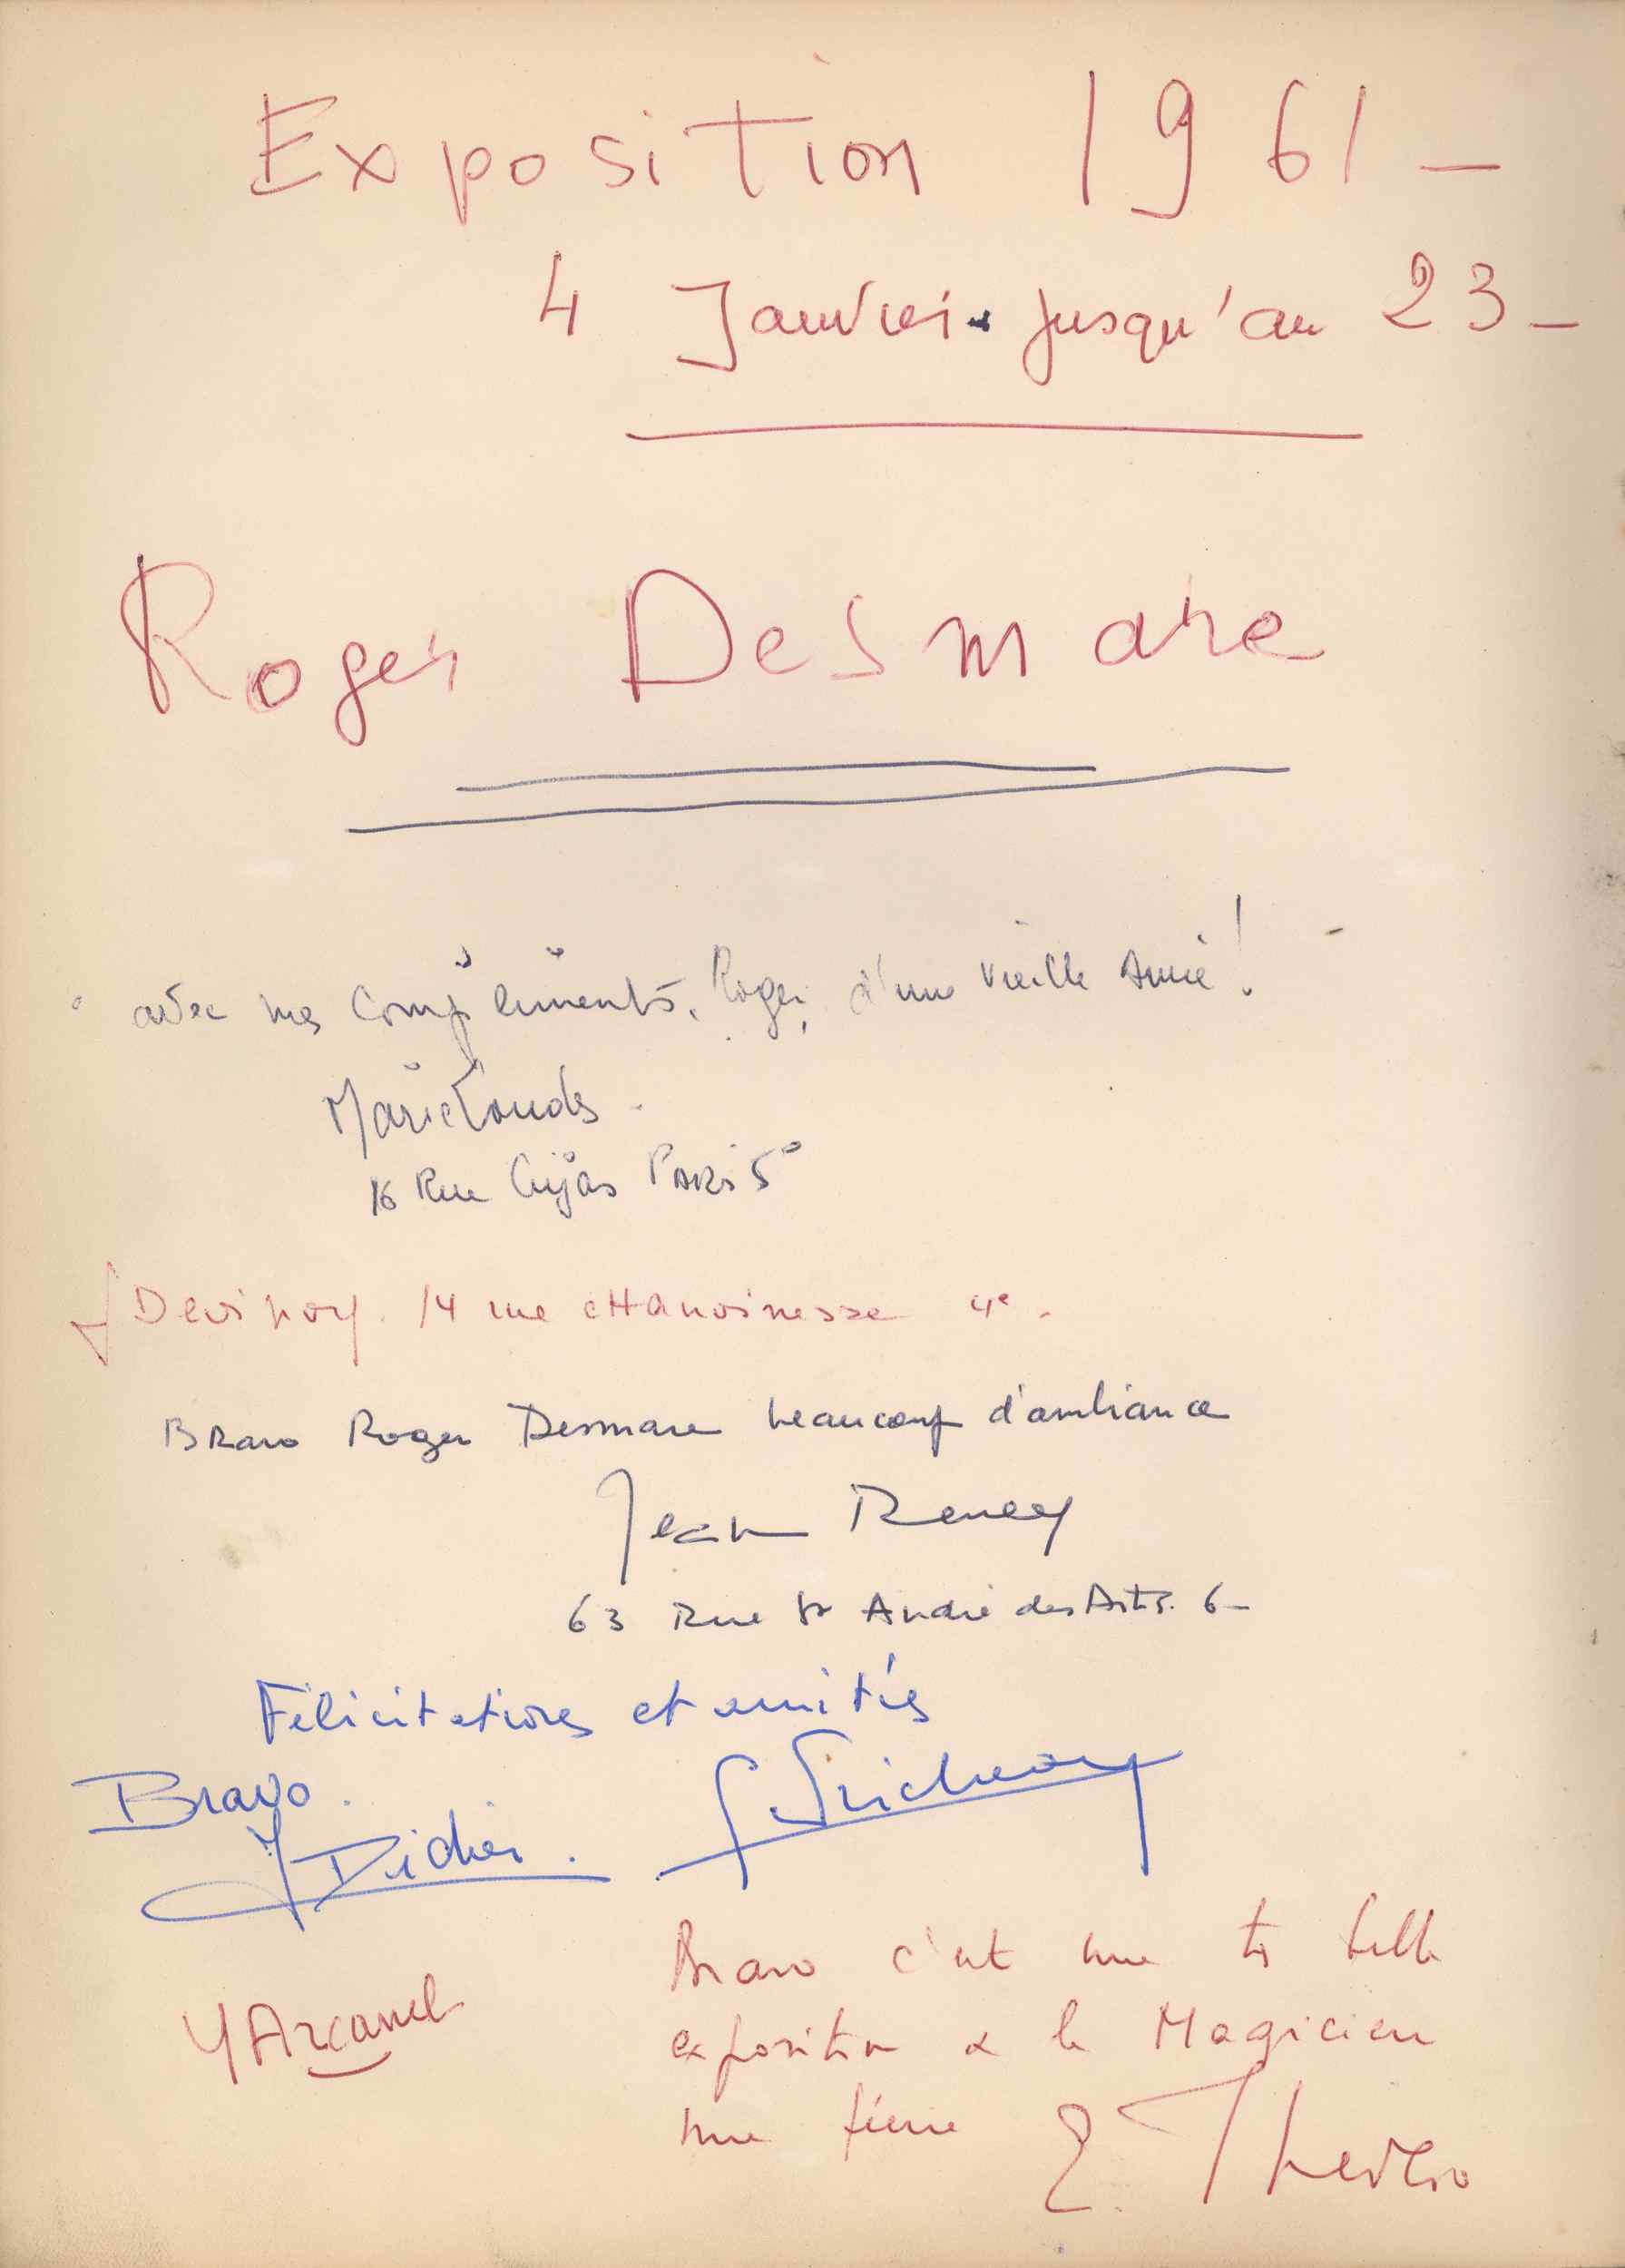 Exposition 1961 –
4 Janvier jusqu'au 23 –
Roger Desmare
avec mes compliments, Roger, d'une vieille Amie!
16 Rue Cujas Paris 5°
14 rue cHanoinesse 4e.
Bravo Roger Desmare beaucoup d'ambiance
Jean
63 Rue St André des Arts. 6–
Félicitations et amitiés
Bravo.
J Didier.
Bravo c'est une tr belle
exposition & le Magicien
une féerie